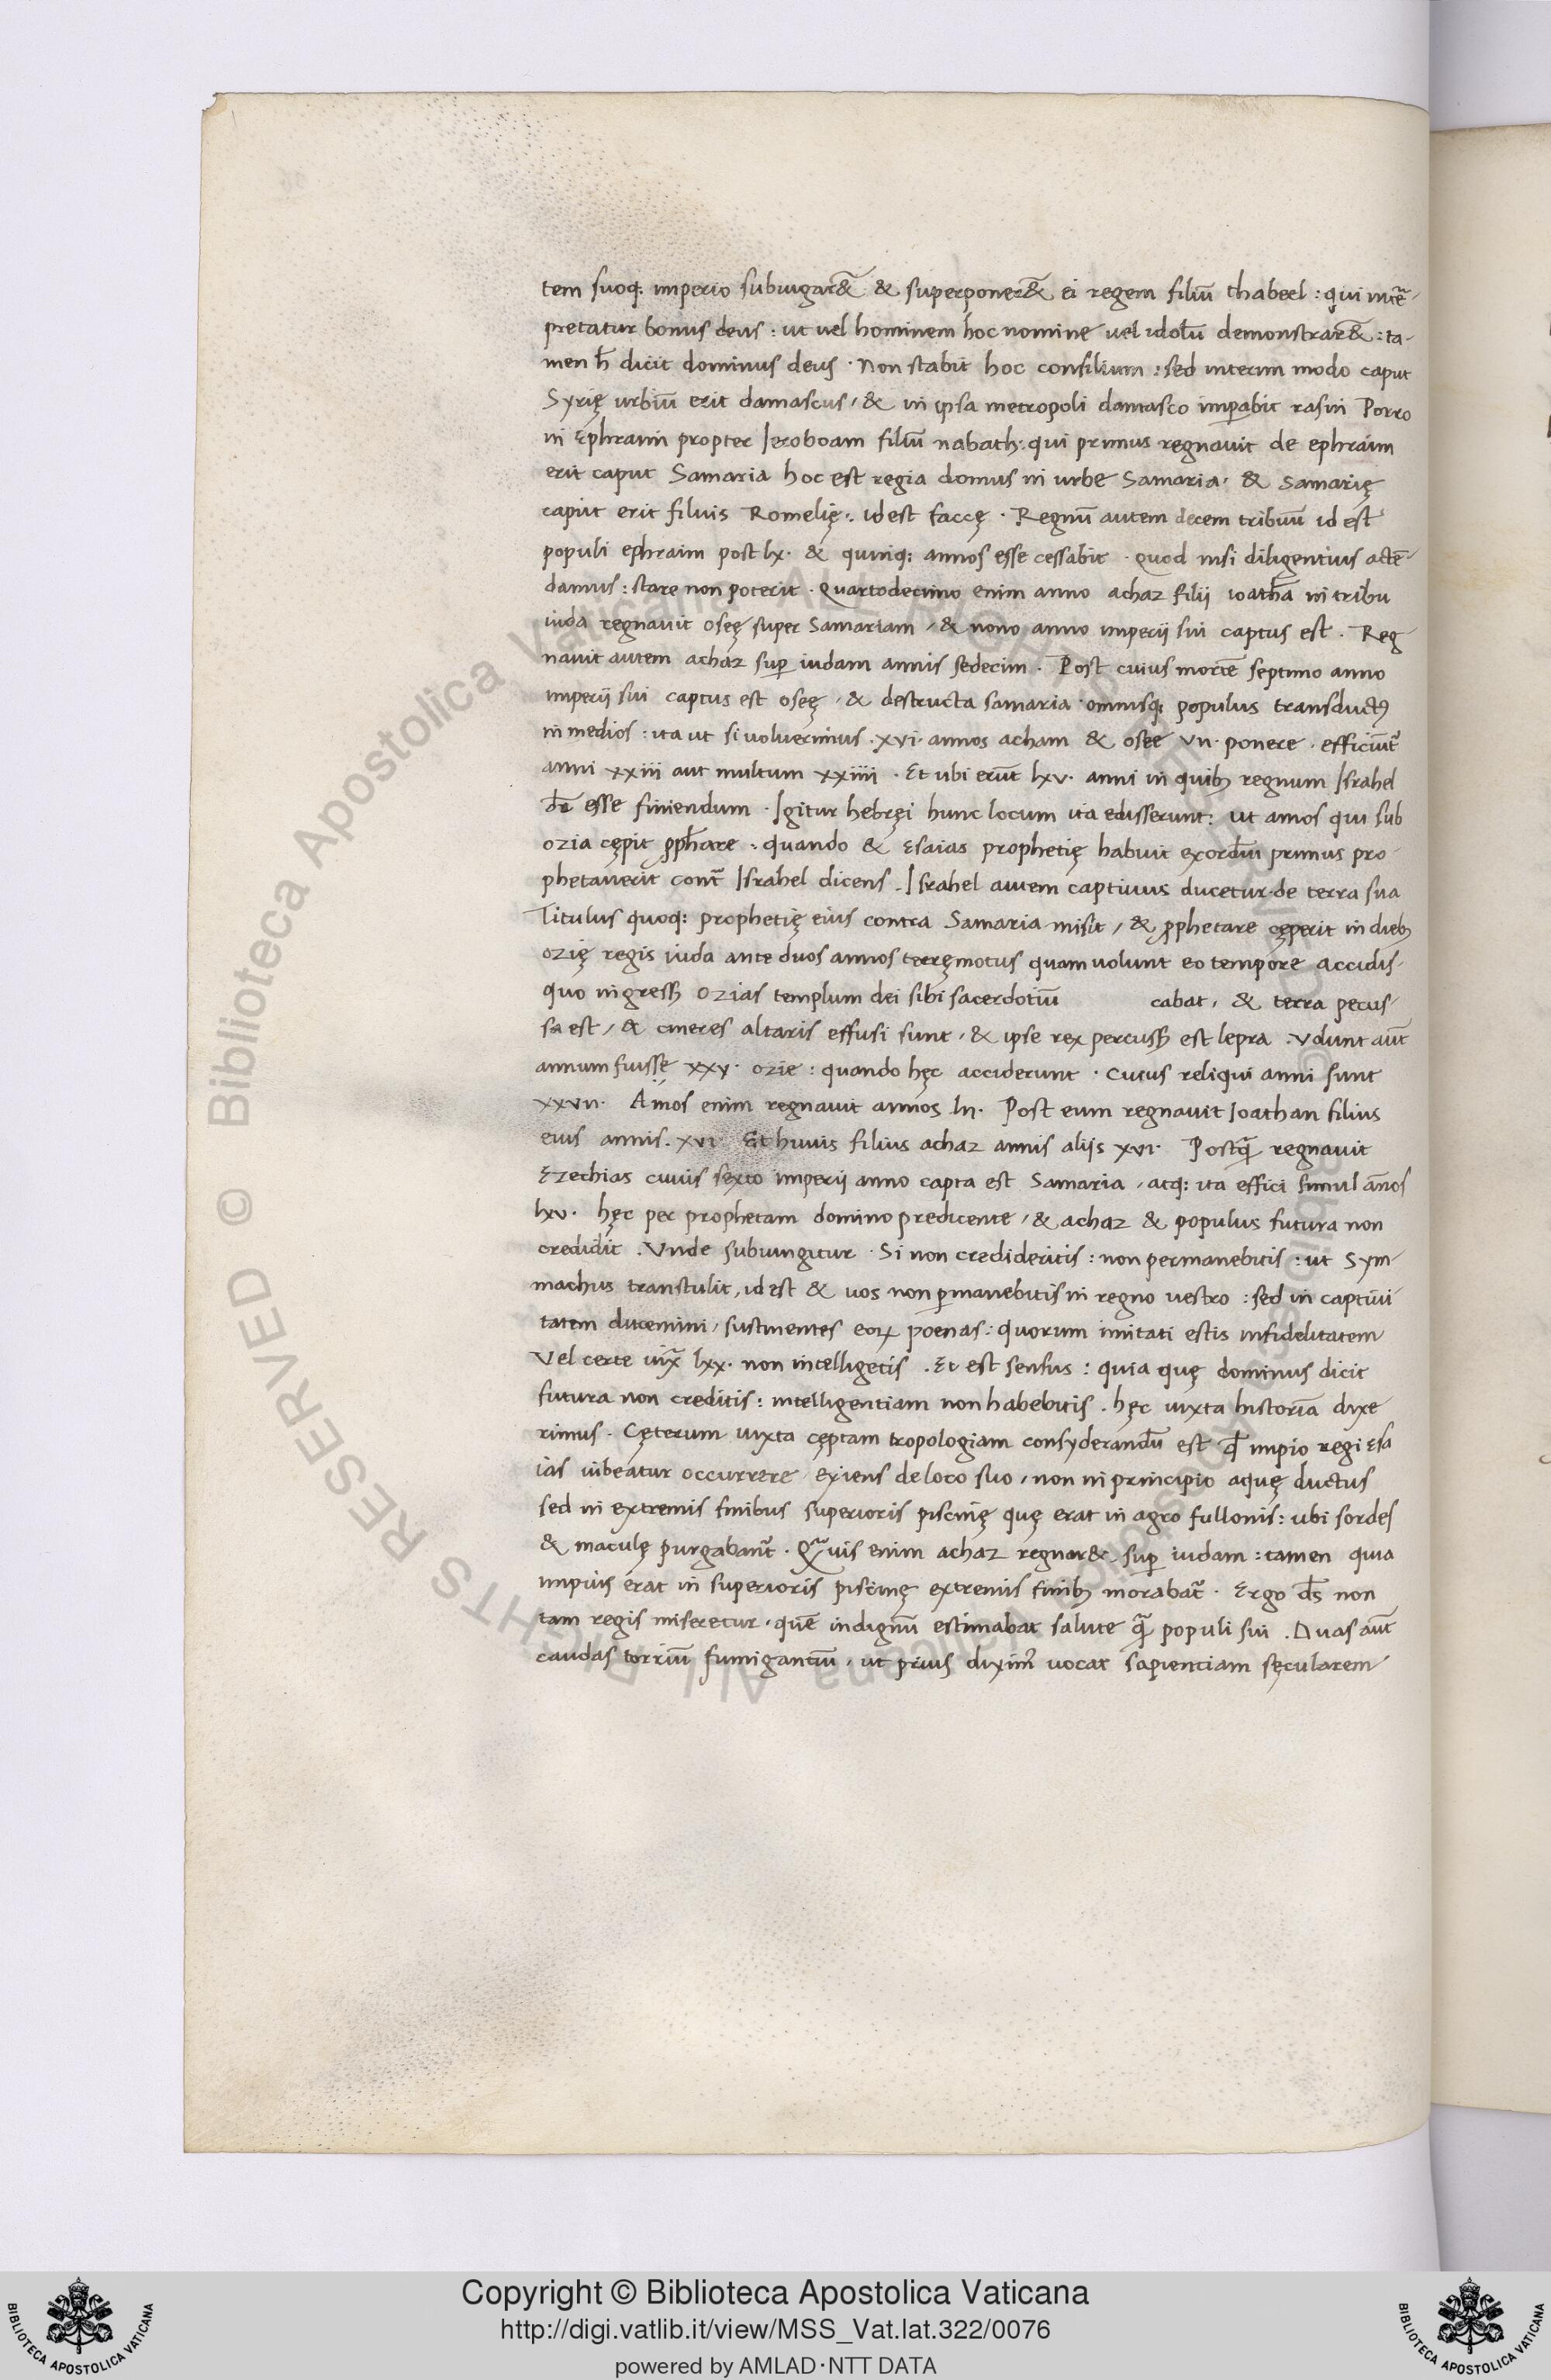 tem suoq; imperio subiugar& & superponer& ei regem filiū thabeel : qui inte᷑r-
pretatur bonus deus : ut uel hominem hoc nomine uel idolū demonstrar& : ta-
men h̄ dicit dominus deus . Non stabit hoc consilium : sed interim modo caput
Syrię urbiū erit damascus / & in ipsa metropoli damasco imꝑabit rasin Porro
in Ephraim propter Ieroboam filiū nabath : qui primus regnauit de ephraim
erit caput Samaria hoc est regia domus in urbe Samaria . & Samarię
caput erit filius Romelię : id est faccę . Regnū autem decem tribuū id est
populi ephraim post lx . & quinq; annos esse cessabit . quod nisi diligentius actē-
damus : stare non poterit . Quartodecimo enim anno achaz filii ioathā in tribu
iuda regnauit oseę super Samariam / & nono anno imperij sui captus est . Reg
nauit autem achaz suꝑ iudam annis sedecim . Post cuius mortē septimo anno
imperij sui captus est oseę / & destructa samaria . omnisq; populus transductꝰ
in medios : ita ut si uoluerimus . xvi . annos acham & osee vii . ponere . efficiūt᷑
anni xxiii aut multum xxiiii . Et ubi erūt lxv . anni in quibꝫ regnum Israhel
dr̄ esse finiendum . Igitur hebręi hunc locum ita edisserunt : ut amos qui sub
ozia cępit ꝓph̄are . quando & Esaias prophetię habuit exordiū primus pro-
phetauerit cont᷑ Israhel dicens . Israhel autem captiuus ducetur . de terra sua
Titulus quoq; prophetię eius contra Samaria misit / & ꝓphetare cęperit in diebꝫ
ozię regis iuda ante duos annos terręmotus quam uolunt eo tempore accidis-
quo ingressꝫ ozias templum dei sibi sacerdotiū cabat , & terra pecus-
sa est / & cineres altaris effusi sunt / & ipse rex percussꝫ est lepra . Vdunt aūt
annum fuisse xxv . ozie : quando hęc acciderunt . Cuius reliqui anni sunt
xxvii . Amos enim regnauit annos lii . Post eum regnauit Ioathan filius
eius annis . xvi . Et huius filius achaz annis alijs xvi . Postq̄ regnauit
Ezechias cuius sexto imperij anno capta est Samaria , atq; ita effici simul ānos
lxv . hęc per prophetam domino predicente / & achaz & populus futura non
credidit . Vnde subiungitur . Si non credideritis : non permanebitis : ut Sym-
machus transtulit , id est & uos non ꝑmanebitis in regno uestro : sed in captiui
tatem ducemini / sustinentes eoꝝ poenas : quorum imitati estis infidelitatem
Vel certe iuxᷓ lxx . non intelligetis . Et est sensus : quia quę dominus dicit
futura non creditis : intelligentiam non habebitis . hęc iuxta historiā dixe
rimus . Cęterum iuxta cęptam tropologiam consyderandū est qđ impio regi Esa
ias iubeatur occurrere exiens de loco suo / non in principio aquę ductus
sed in extremis finibus superioris piscinę quę erat in agro fullonis : ubi sordes
& maculę purgabant᷑ . Qᷓuis enim achaz regnar& suꝑ iudam : tamen quia
impius erat in superioris piscinę extremis finibꝫ morabat᷑ . Ergo d̄s non
tam regis miseretur . quē indignū estimabat salute q̄ populi sui . Duas aūt
caudas torriū fumigantiū , ut prius diximꝰ uocat sapientiam sęcularem
Copyright © Biblioteca Apostolica Vaticana
http://digi.vatlib.it/view/MSS_Vat.lat.322/0076
powered by AMLAD·NTT DATA